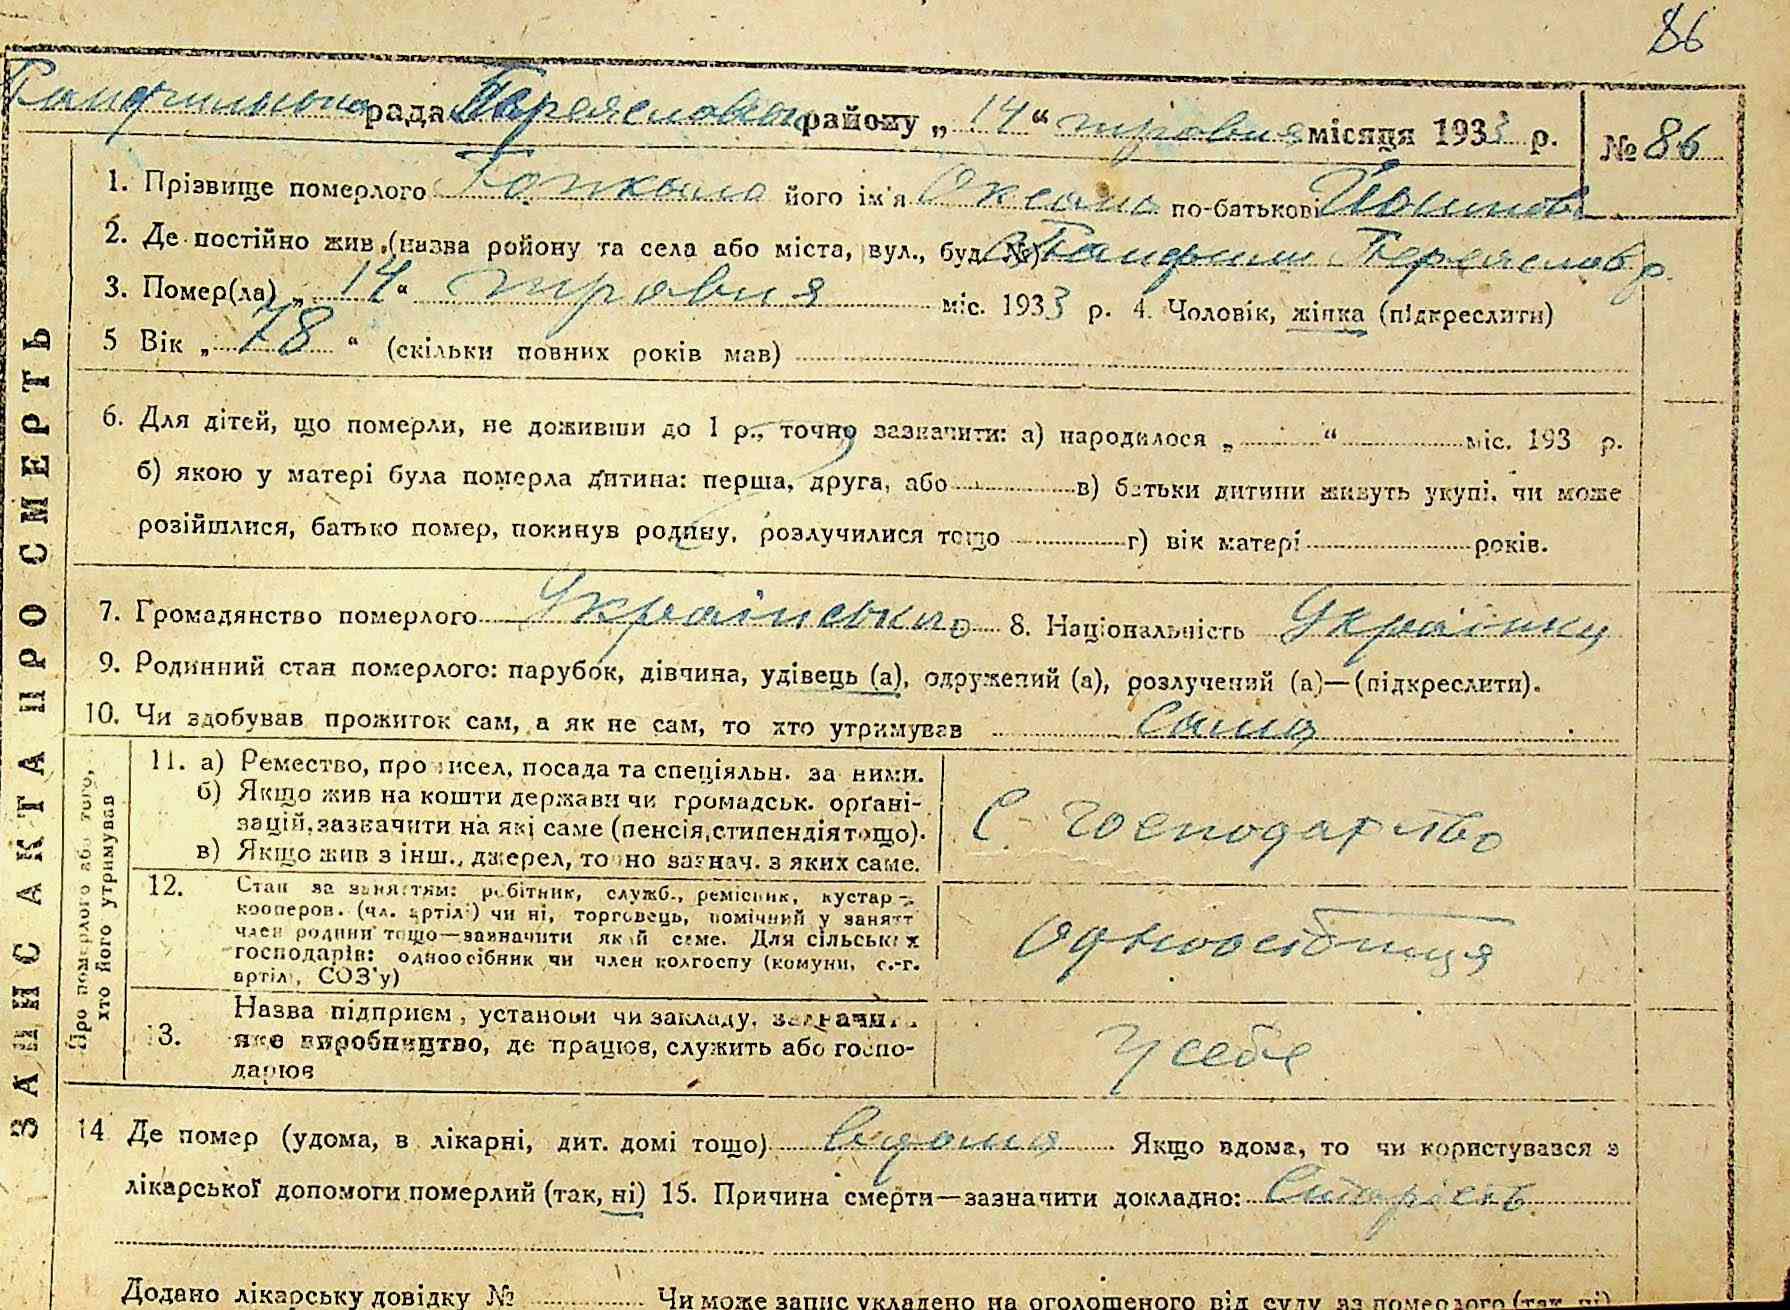 86
рада Переяславськ району „ 14 “ травня місяця 1933 р. № 86
1. Прізвище померлого його ім'я Оксана по-батькові
2. Де постійно жив (назва ройону та села або міста, вул., буд. №) с. Панфили Переяслав р.
3. Помер(ла) „ 14 “ травня міс. 1933 р. 4. Чоловік, жінка (підкреслити)
5 Вік „ 78 “ (скільки повних років мав)
6. Для дітей, що померли, не доживши до 1 р., точно зазначити: а) народилося „ “ міс. 193 р.
б) якою у матері була померла дитина: перша, друга, або в) батьки дитини живуть укупі, чи може
розійшлися, батько помер, покинув родину, розлучилися тощо г) вік матері років.
7. Громадянство померлого Українське 8. Національність Українка
9. Родинний стан померлого: парубок, дівчина, удівець (а), одружений (а), розлучений (а)—(підкреслити).
10. Чи здобував прожиток сам, а як не сам, то хто утримував сама
ЗАПИС АКТА ПРО СМЕРТЬ
Про померлого або того, хто його утримував
11. а) Ремество, промисел, посада та спеціяльн. за ними.
б) Якщо жив на кошти держави чи громадськ. орґані-
зацій, зазначити на які саме (пенсія, стипендія тощо).
в) Якщо жив з інш., джерел, точно зазнач. з яких саме.
С. господарство
12. Стан за заняттям: робітник, служб., ремісник, кустар-
кооперов. (чл. артілі) чи ні, торговець, помічний у занятт
член родини тощо—зазначити який саме. Для сільських
господарів: одноосібник чи член колгоспу (комуни, с.-г.
артілі, СОЗ'у)
одноосібниця
13. Назва підприєм, установи чи закладу, зазначит
яке виробництво, де працює, служить або госпо-
дарює
У себе
14 Де помер (удома, в лікарні, дит. домі тощо) вдома Якщо вдома, то чи користувався з
лікарської допомоги померлий (так, ні) 15. Причина смерти—зазначити докладно: Старість
Додано лікарську довідку № Чи може запис укладено на оголошеного від суду за померлого (так, ні)